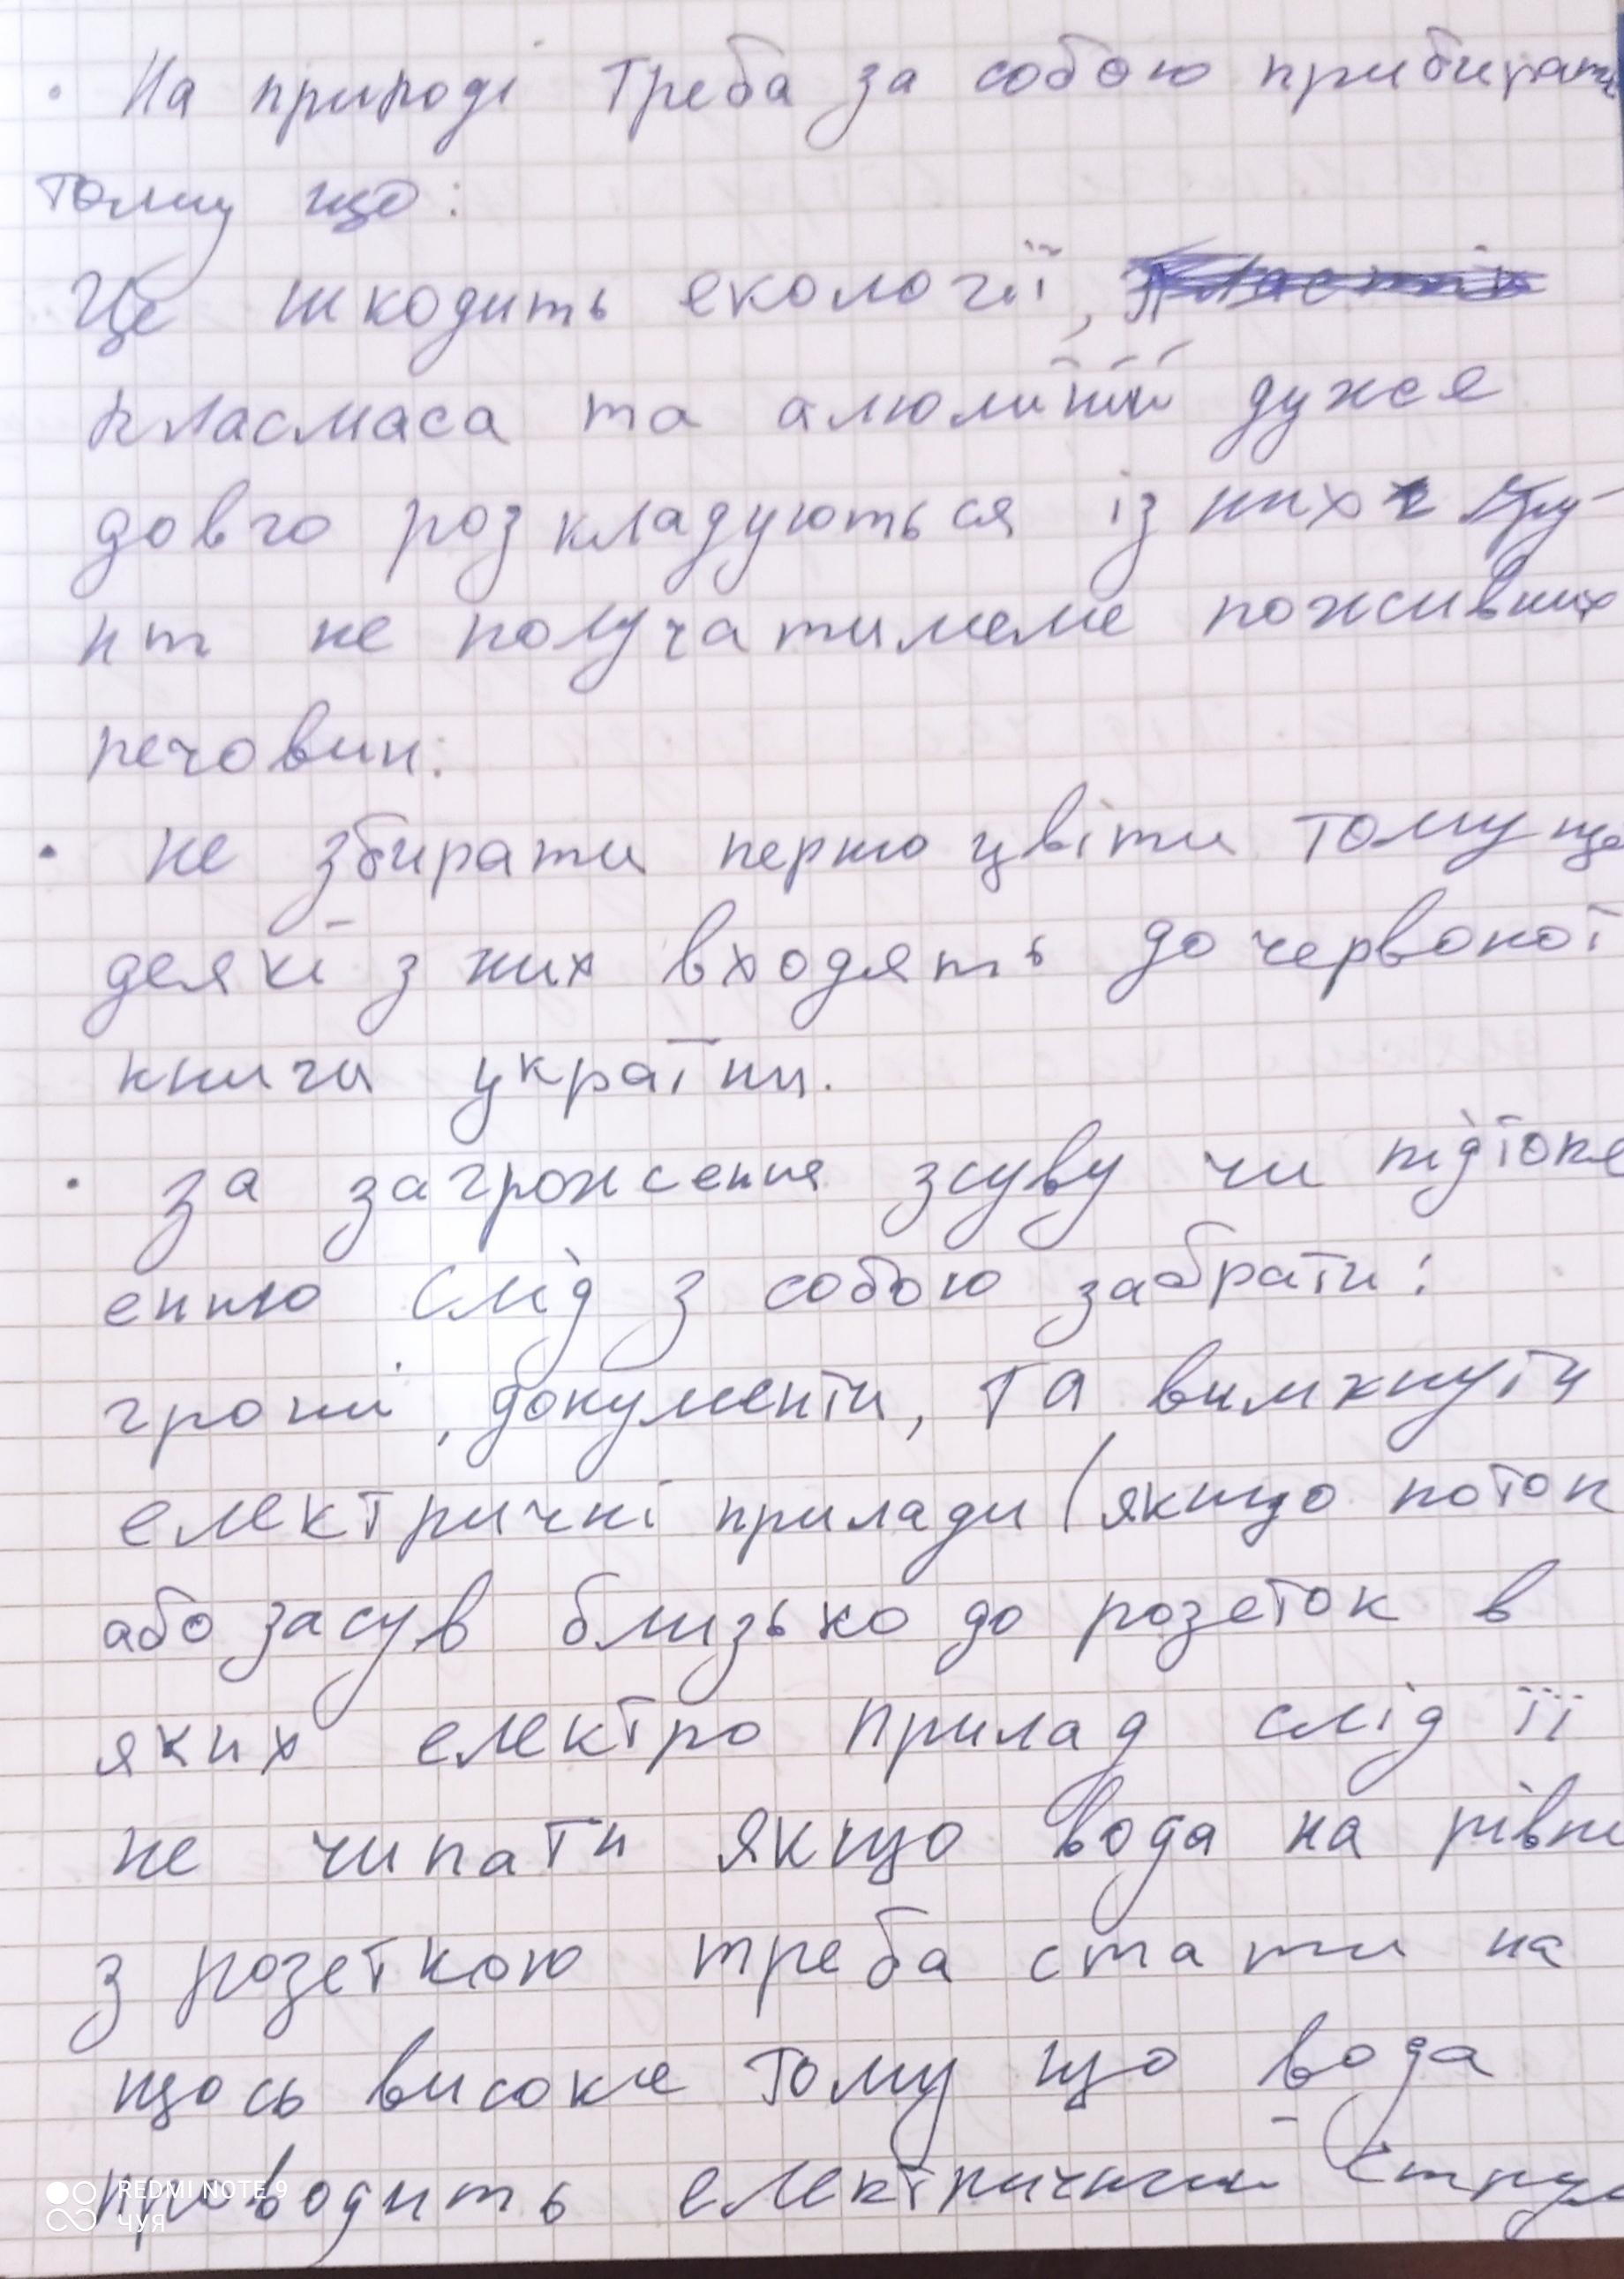 · На природі Треба за собою прибирати
тому що:
Це шкодить екології,
пласмаса та алюміній дуже
довго розкладуються із них гру-
нт не получатимеме поживних
речовин.
· не збирати першоцвіти тому що
деякі з них входять до червоної
книги україни.
· за загроження зсуву чи підтопл
енню слід з собою забрати:
гроші, документи, та вимкнути
електричні прилади (якщо поток
або засув близько до розеток в
яких електро прилад слід її
не чипати якщо вода на рівні
з розеткою треба стати на
щось високе тому що вода
проводить електричний струм
REDMI NOTE 9
ЧУЯ